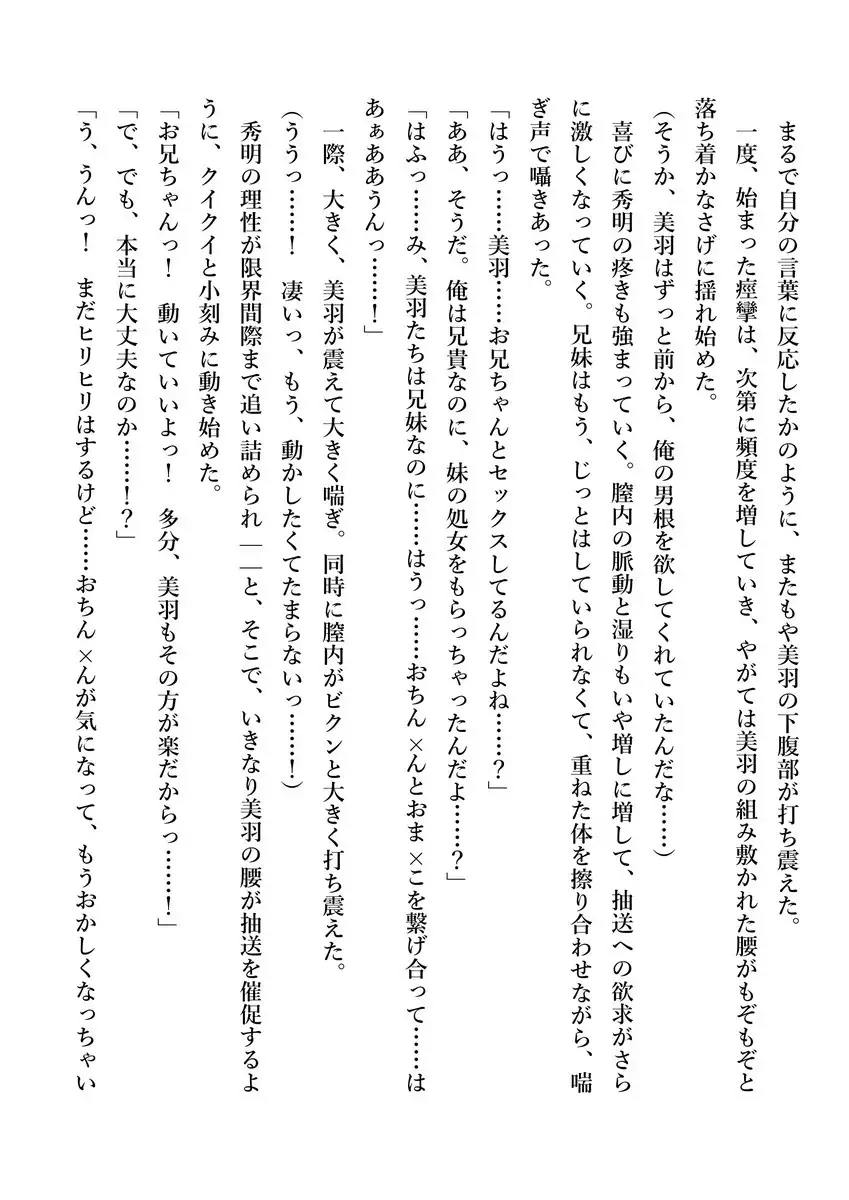 まるで自分の言葉に反応したかのように、またもや美羽の下腹部が打ち震えた。
一度、始まった痙攣は、次第に頻度を増していき、やがては美羽の組み敷かれた腰がもぞもぞと
落ち着かなさげに揺れ始めた。
(そうか、美羽はずっと前から、俺の男根を欲してくれていたんだな……)
喜びに秀明の疼きも強まっていく。膣内の脈動と湿りもいや増しに増して、抽送への欲求がさら
に激しくなっていく。兄妹はもう、じっとはしていられなくて、重ねた体を擦り合わせながら、喘
ぎ声で囁きあった。
「はうっ……美羽……お兄ちゃんとセックスしてるんだよね……?」
「ああ、そうだ。俺は兄貴なのに、妹の処女をもらっちゃったんだよ……?」
「はふっ……み、美羽たちは兄妹なのに……はうっ……おちん×んとおま×こを繋げ合って……は
あぁああうんっ……!」
一際、大きく、美羽が震えて大きく喘ぎ。同時に膣内がビクンと大きく打ち震えた。
(ううっ……! 凄いっ、もう、動かしたくてたまらないっ……!)
秀明の理性が限界間際まで追い詰められ――と、そこで、いきなり美羽の腰が抽送を催促するよ
うに、クイクイと小刻みに動き始めた。
「お兄ちゃんっ! 動いていいよっ! 多分、美羽もその方が楽だからっ……!」
「で、でも、本当に大丈夫なのか……!?」
「う、うんっ! まだヒリヒリはするけど……おちん×んが気になって、もうおかしくなっちゃい